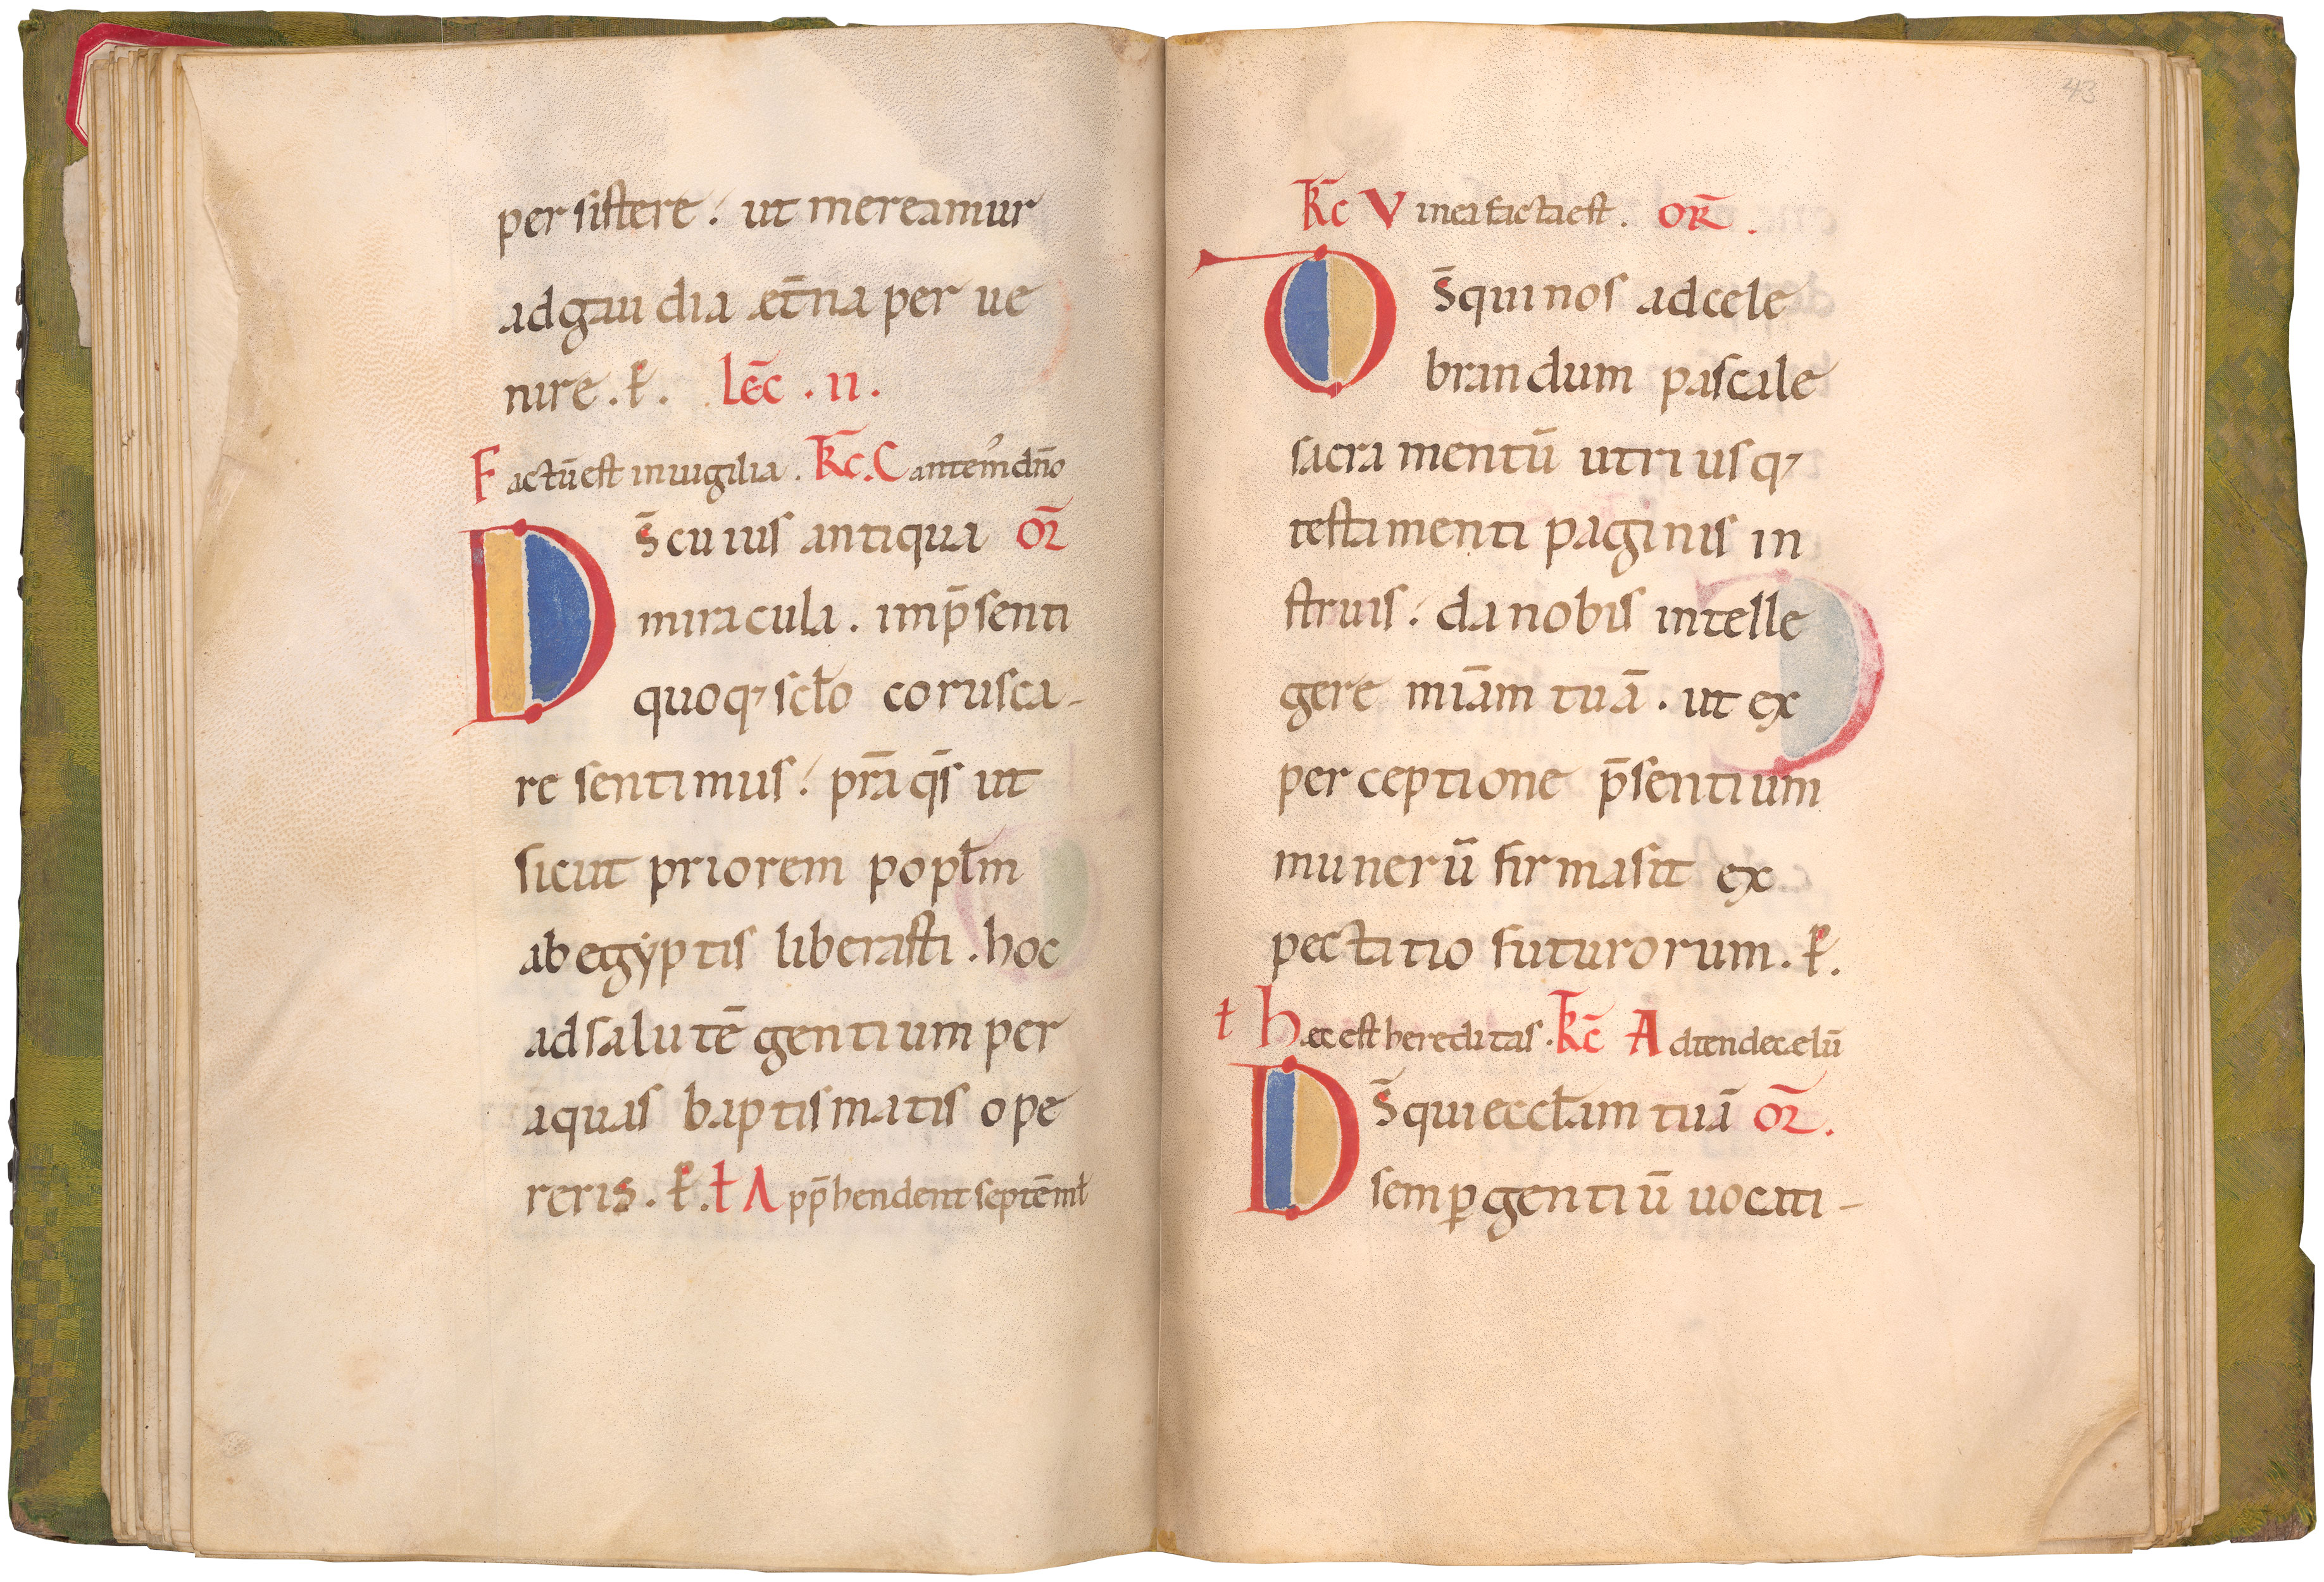 per sistere. ut mereamur
ad gau dia æt̄na per ue
nire. ꝑ. lēc. ii.
Factū est in uigilia. R̄c. Cantem' dn̄o
D s̄ cu ius antiqua or̄
miracula. imp̄senti
quoq; sc̄lo corusca-
re sentimus. p̄ra q̄s ut
sicut priorem popl̄m
ab egẏptis liberasti. hoc
ad salutē gentium per
aquas baptismatis ope
reris. ꝑ. t App̄hendent septē ml̄
43
R̄c Vinea facta est. OR̄.
D s̄ qui nos ad cele
brandum pascale
sacra mentū utriusq;
testamenti paginis in
struis. da nobis intelle
gere mīam tuā. ut ex
perceptione p̄sentium
munerū firma sit ex
pectatio futurorum. ꝑ.
t Hæc est hereditas. R̄c Adtende cælū
D s̄ qui eccl̄am tuā or̄.
semꝑ gentiū uocati-